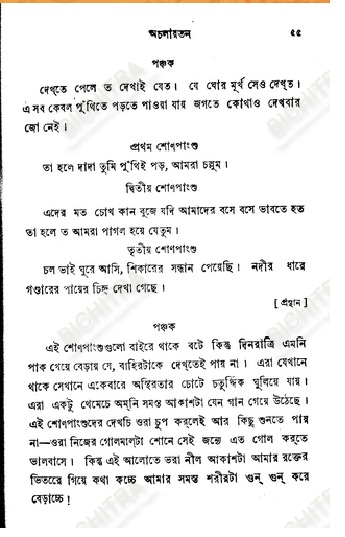 অচলায়তন ৫৫
পঞ্চক
দেখ্‌তে পেলে ত দেখাই যেত। যে ঘোর মূর্খ সেও দেখ্‌ত।
এ সব কেবল পুঁথিতে পড়তে পাওয়া যায় জগতে কোথাও দেখবার
জো নেই।
প্রথম শোণপাংশু
তা হলে দাদা তুমি পুঁথিই পড়, আমরা চল্লুম।
দ্বিতীয় শোণপাংশু
এদের মত চোখ কান বুজে যদি আমাদের বসে বসে ভাবতে হত
তা হলে ত আমরা পাগল হয়ে যেতুম।
তৃতীয় শোণপাংশু
চল ভাই ঘুরে আসি, শিকারের সন্ধান পেয়েছি। নদীর ধারে
গণ্ডারের পায়ের চিহ্ন দেখা গেছে।
[ প্রস্থান ]
পঞ্চক
এই শোণপাংশুগুলো বাইরে থাকে বটে কিন্তু দিনরাত্রি এমনি
পাক খেয়ে বেড়ায় যে, বাহিরটাকে দেখ্‌তেই পায় না। এরা যেখানে
থাকে সেখানে একেবারে অস্থিরতার চোটে চতুর্দ্দিক ঘুলিয়ে যায়।
এরা একটু থেমেচে অম্‌নি সমস্ত আকাশটা যেন গান গেয়ে উঠেছে।
এই শোণপাংশুদের দেখচি ওরা চুপ করলেই আর কিছু শুনতে পায়
না—ওরা নিজের গোলমালটা শোনে সেই জন্যে এত গোল করতে
ভালবাসে। কিন্তু এই আলোতে ভরা নীল আকাশটা আমার রক্তের
ভিতরে গিয়ে কথা কচ্চে আমার সমস্ত শরীরটা গুন্ গুন্ করে
বেড়াচ্চে!
BICHITRA